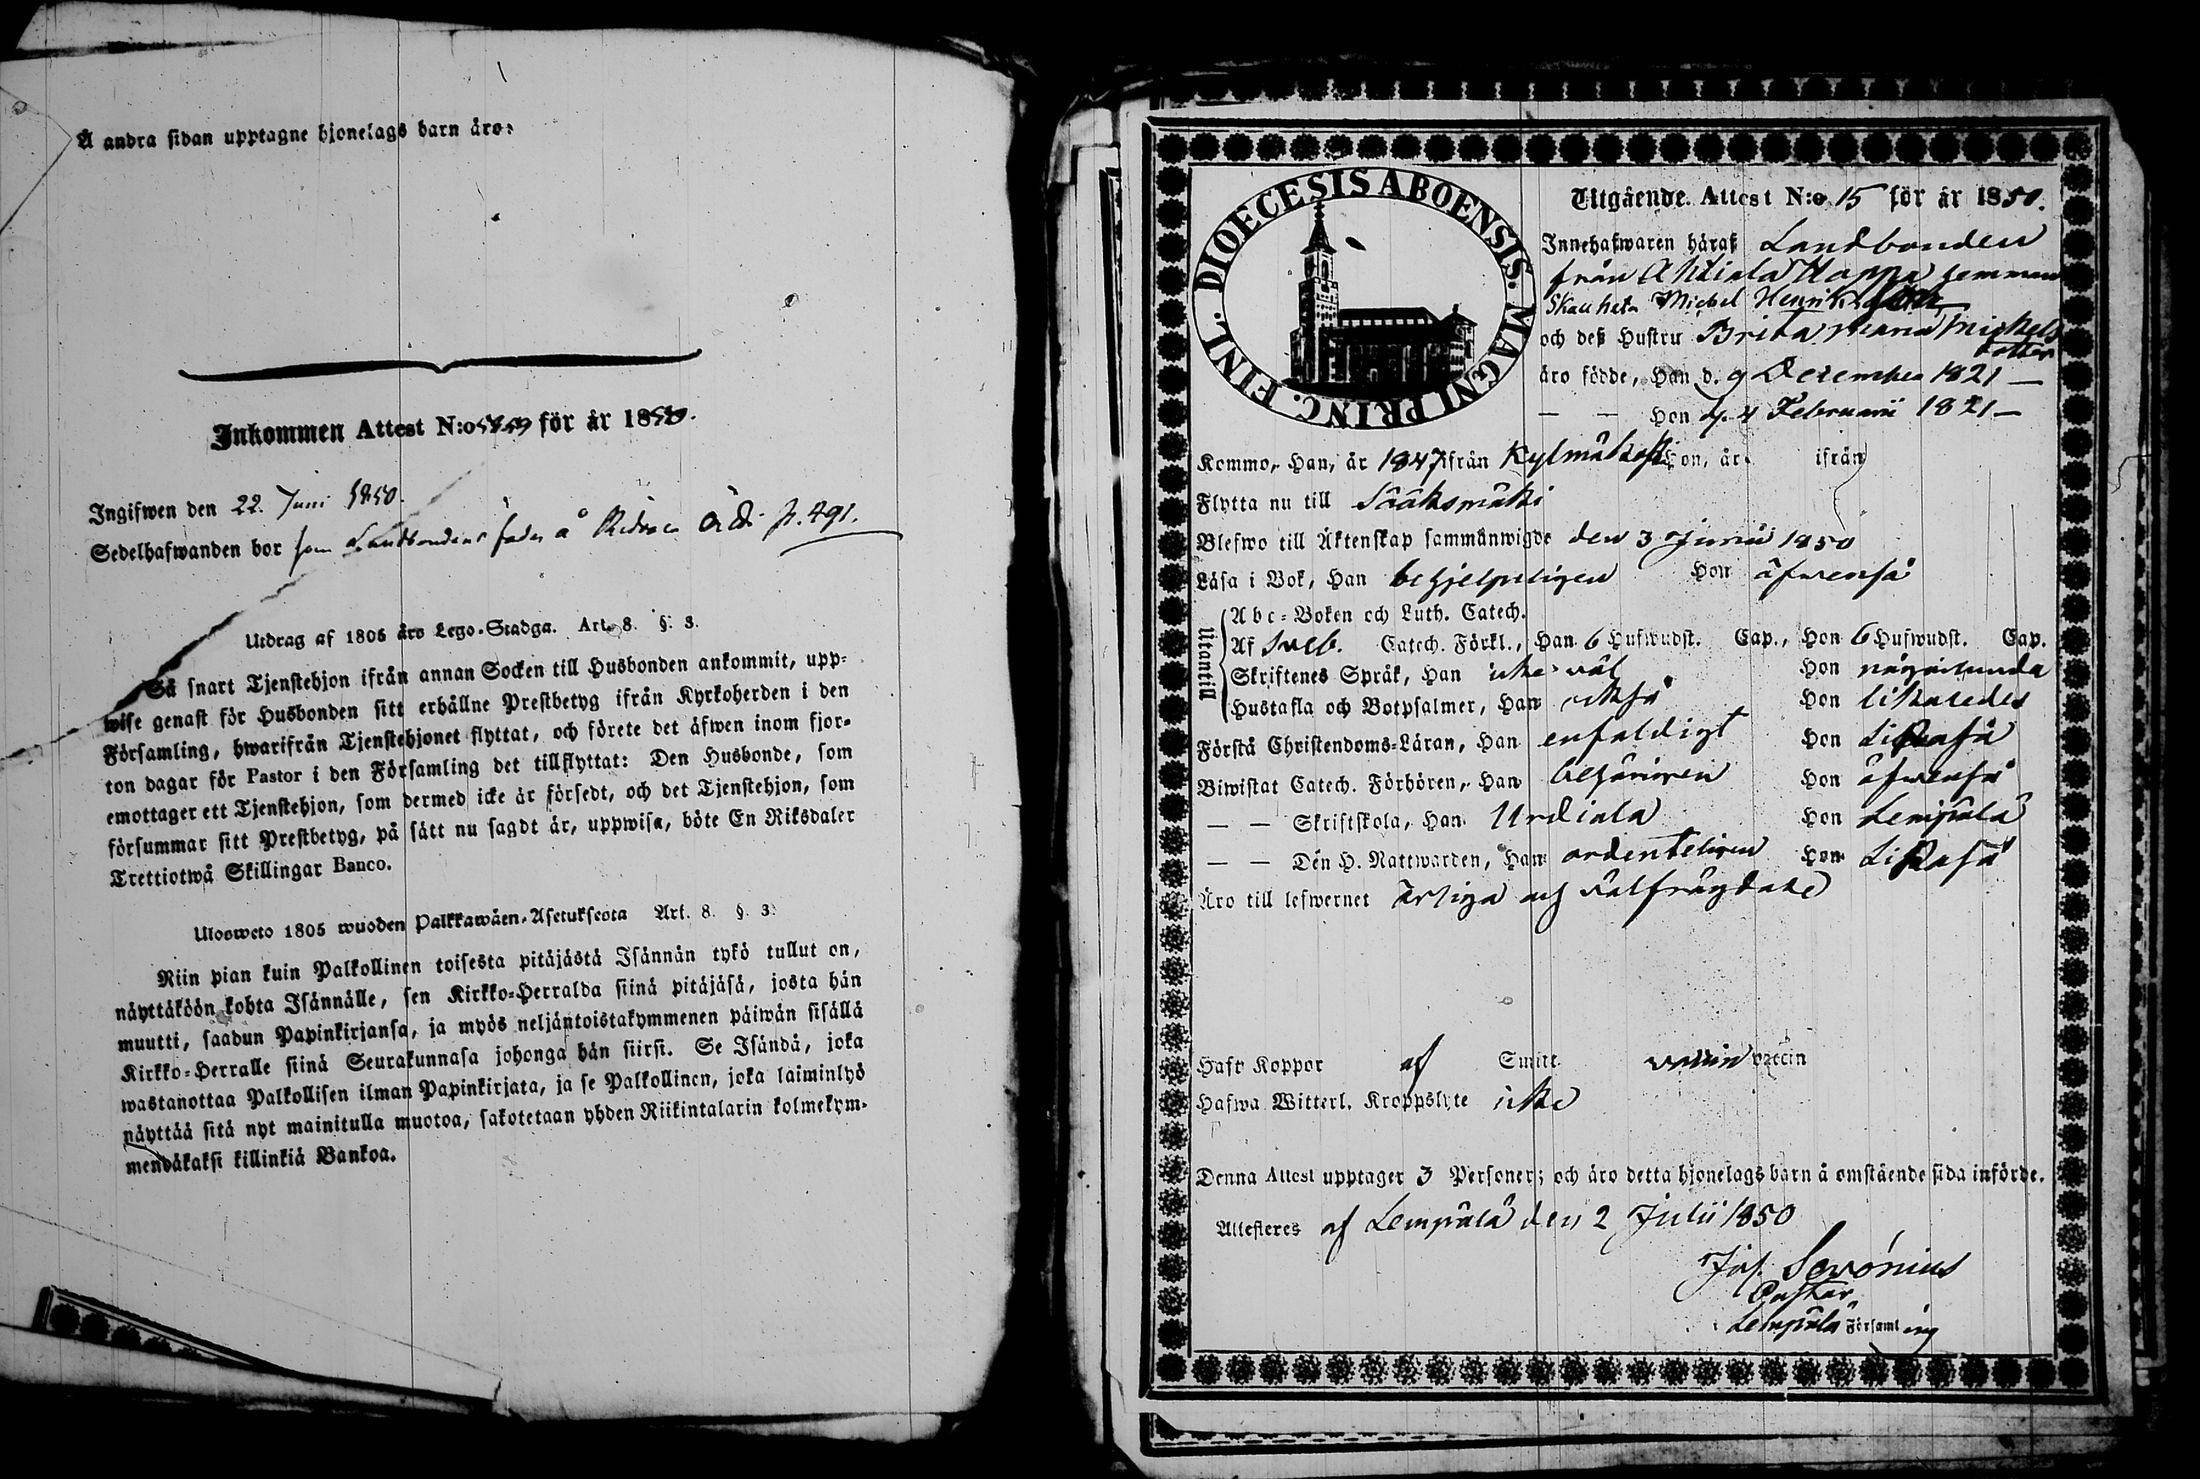 Å andra sidan upptagne hjonelags barn äro:
Inkommen Attest N:o för år 1850.
Ingifwen den 22. Juni 1850.
Sedelhafwanden bor som Landbondens å p. 491.
Utdrag af 1805 års Lego-Stadga. Art. 8. §. 3.
Så snart Tjenstehjon ifrån annan Socken till Husbonden ankommit, upp-
wise genast för Husbonden sitt erhållne Prestbetyg ifrån Kyrkoherden i den
Församling, hwarifrån Tjenstehjonet flyttat, och förete det äfwen inom fjor-
ton dagar för Pastor i den Församling det tillflyttat: Den Husbonde, som
emottager ett Tjenstehjon, som dermed icke är försedt, och det Tjenstehjon, som
försummar sitt Prestbetyg, på sätt nu sagdt är, uppwisa, böte En Riksdaler
Trettiotwå Skillingar Banco.
Ulosweto 1805 wuoden Palkkawäen-Asetuksesta Art. 8. §. 3.
Niin pian kuin Palkollinen toisesta pitäjästä Isännän tykö tullut on,
näyttäköön kohta Isännälle, sen Kirkko-Herralda siinä pitäjäsä, josta hän
muutti, saadun Papinkirjansa, ja myös neljäntoistakymmenen päiwän sisällä
Kirkko-Herralle siinä Seurakunnasa johonga hän siirsi. Se Isändä, joka
wastanottaa Palkollisen ilman Papinkirjata, ja se Palkollinen, joka laiminlyö
näyttää sitä nyt mainitulla muotoa, sakotetaan yhden Riikintalarin kolmekym-
mendäkaksi killinkiä Bankoa.
DIOECESIS ABOENSIS. MAGNI PRINC. FINL.
Utgående Attest N:o 15 för år 1850.
Innehafwaren häraf Landbonden
från Ahtiala hemman
Michel Henriksson
och deß Hustru Brita Maria Michels
dotter
äro födde, Han d. 9 December 1821 —
— — Hon d. 4 Februarii 1821 —
Kommo, Han, år 1847 ifrån Kylmäkoski Hon, år ifrån
Flytta nu till Sääksmäki
Blefwo till Äktenskap sammanwigde den 3 Junii 1850
Läsa i Bok, Han behjelpeligen Hon äfwenså
Utantill
Abc-Boken och Luth. Catech.
Af Sveb. Catech. Förkl., Han 6 Hufwudst. Cap., Hon 6 Hufwudst. Cap.
Skriftenes Språk, Han icke väl Hon någorlunda
Hustafla och Botpsalmer, Han också Hon likaledes
Förstå Christendoms-Läran, Han enfaldigt Hon likaså
Biwistat Catech. Förhören, Han behörigen Hon äfwenså
— — Skriftskola, Han Urdiala Hon Lempälä
— — Den H. Nattwarden, Han ordenteligen Hon Likaså
Äro till lefwernet ärliga och välfrägdade
Haft Koppor af Smitt. vaccin vaccin
Hafwa Witterl. Kroppslyte icke
Denna Attest upptager 3 Personer; och äro detta hjonelags barn å omstående sida införde.
Attesteres af Lempälä den 2 Julii 1850
Jos. Servónius
Pastor
Lempälä Församling